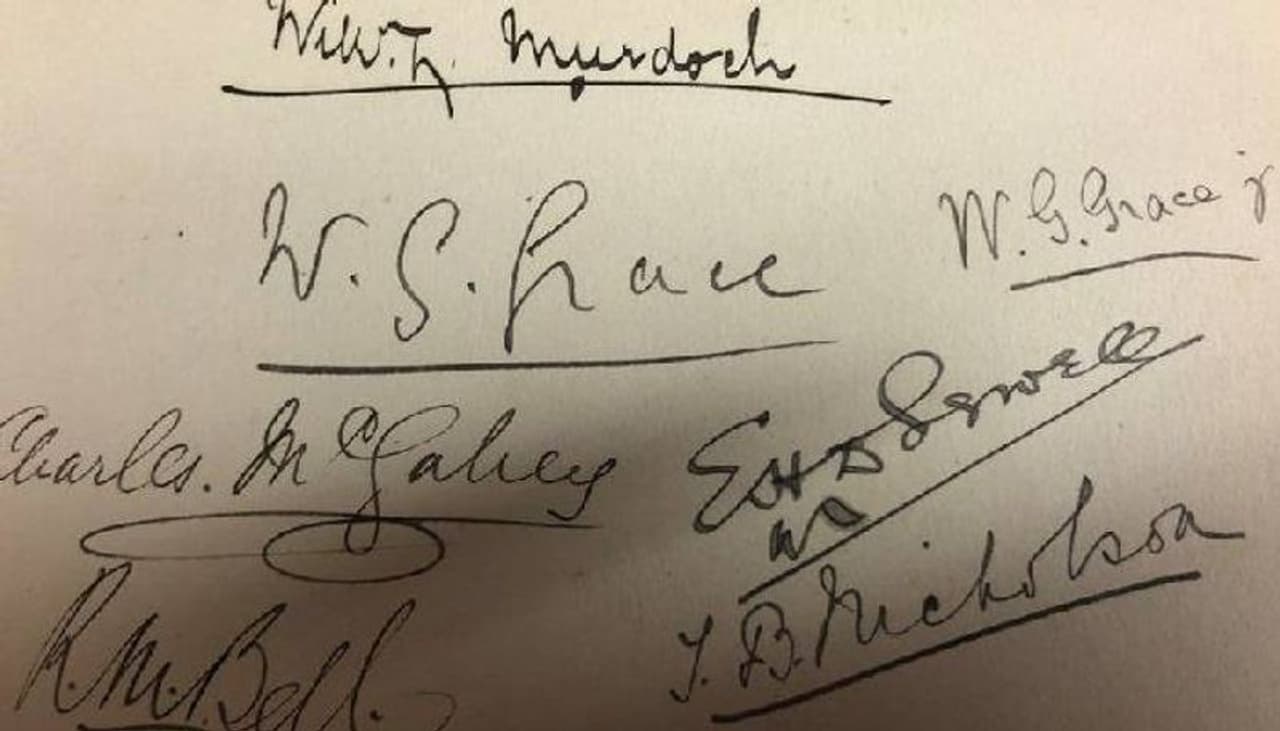 Will. L. Murdoch
W. G. Grace
W. G. Grace jr
Charles. McGahey
E H D Sewell
R. M. Bell.
J. B. Nicholson